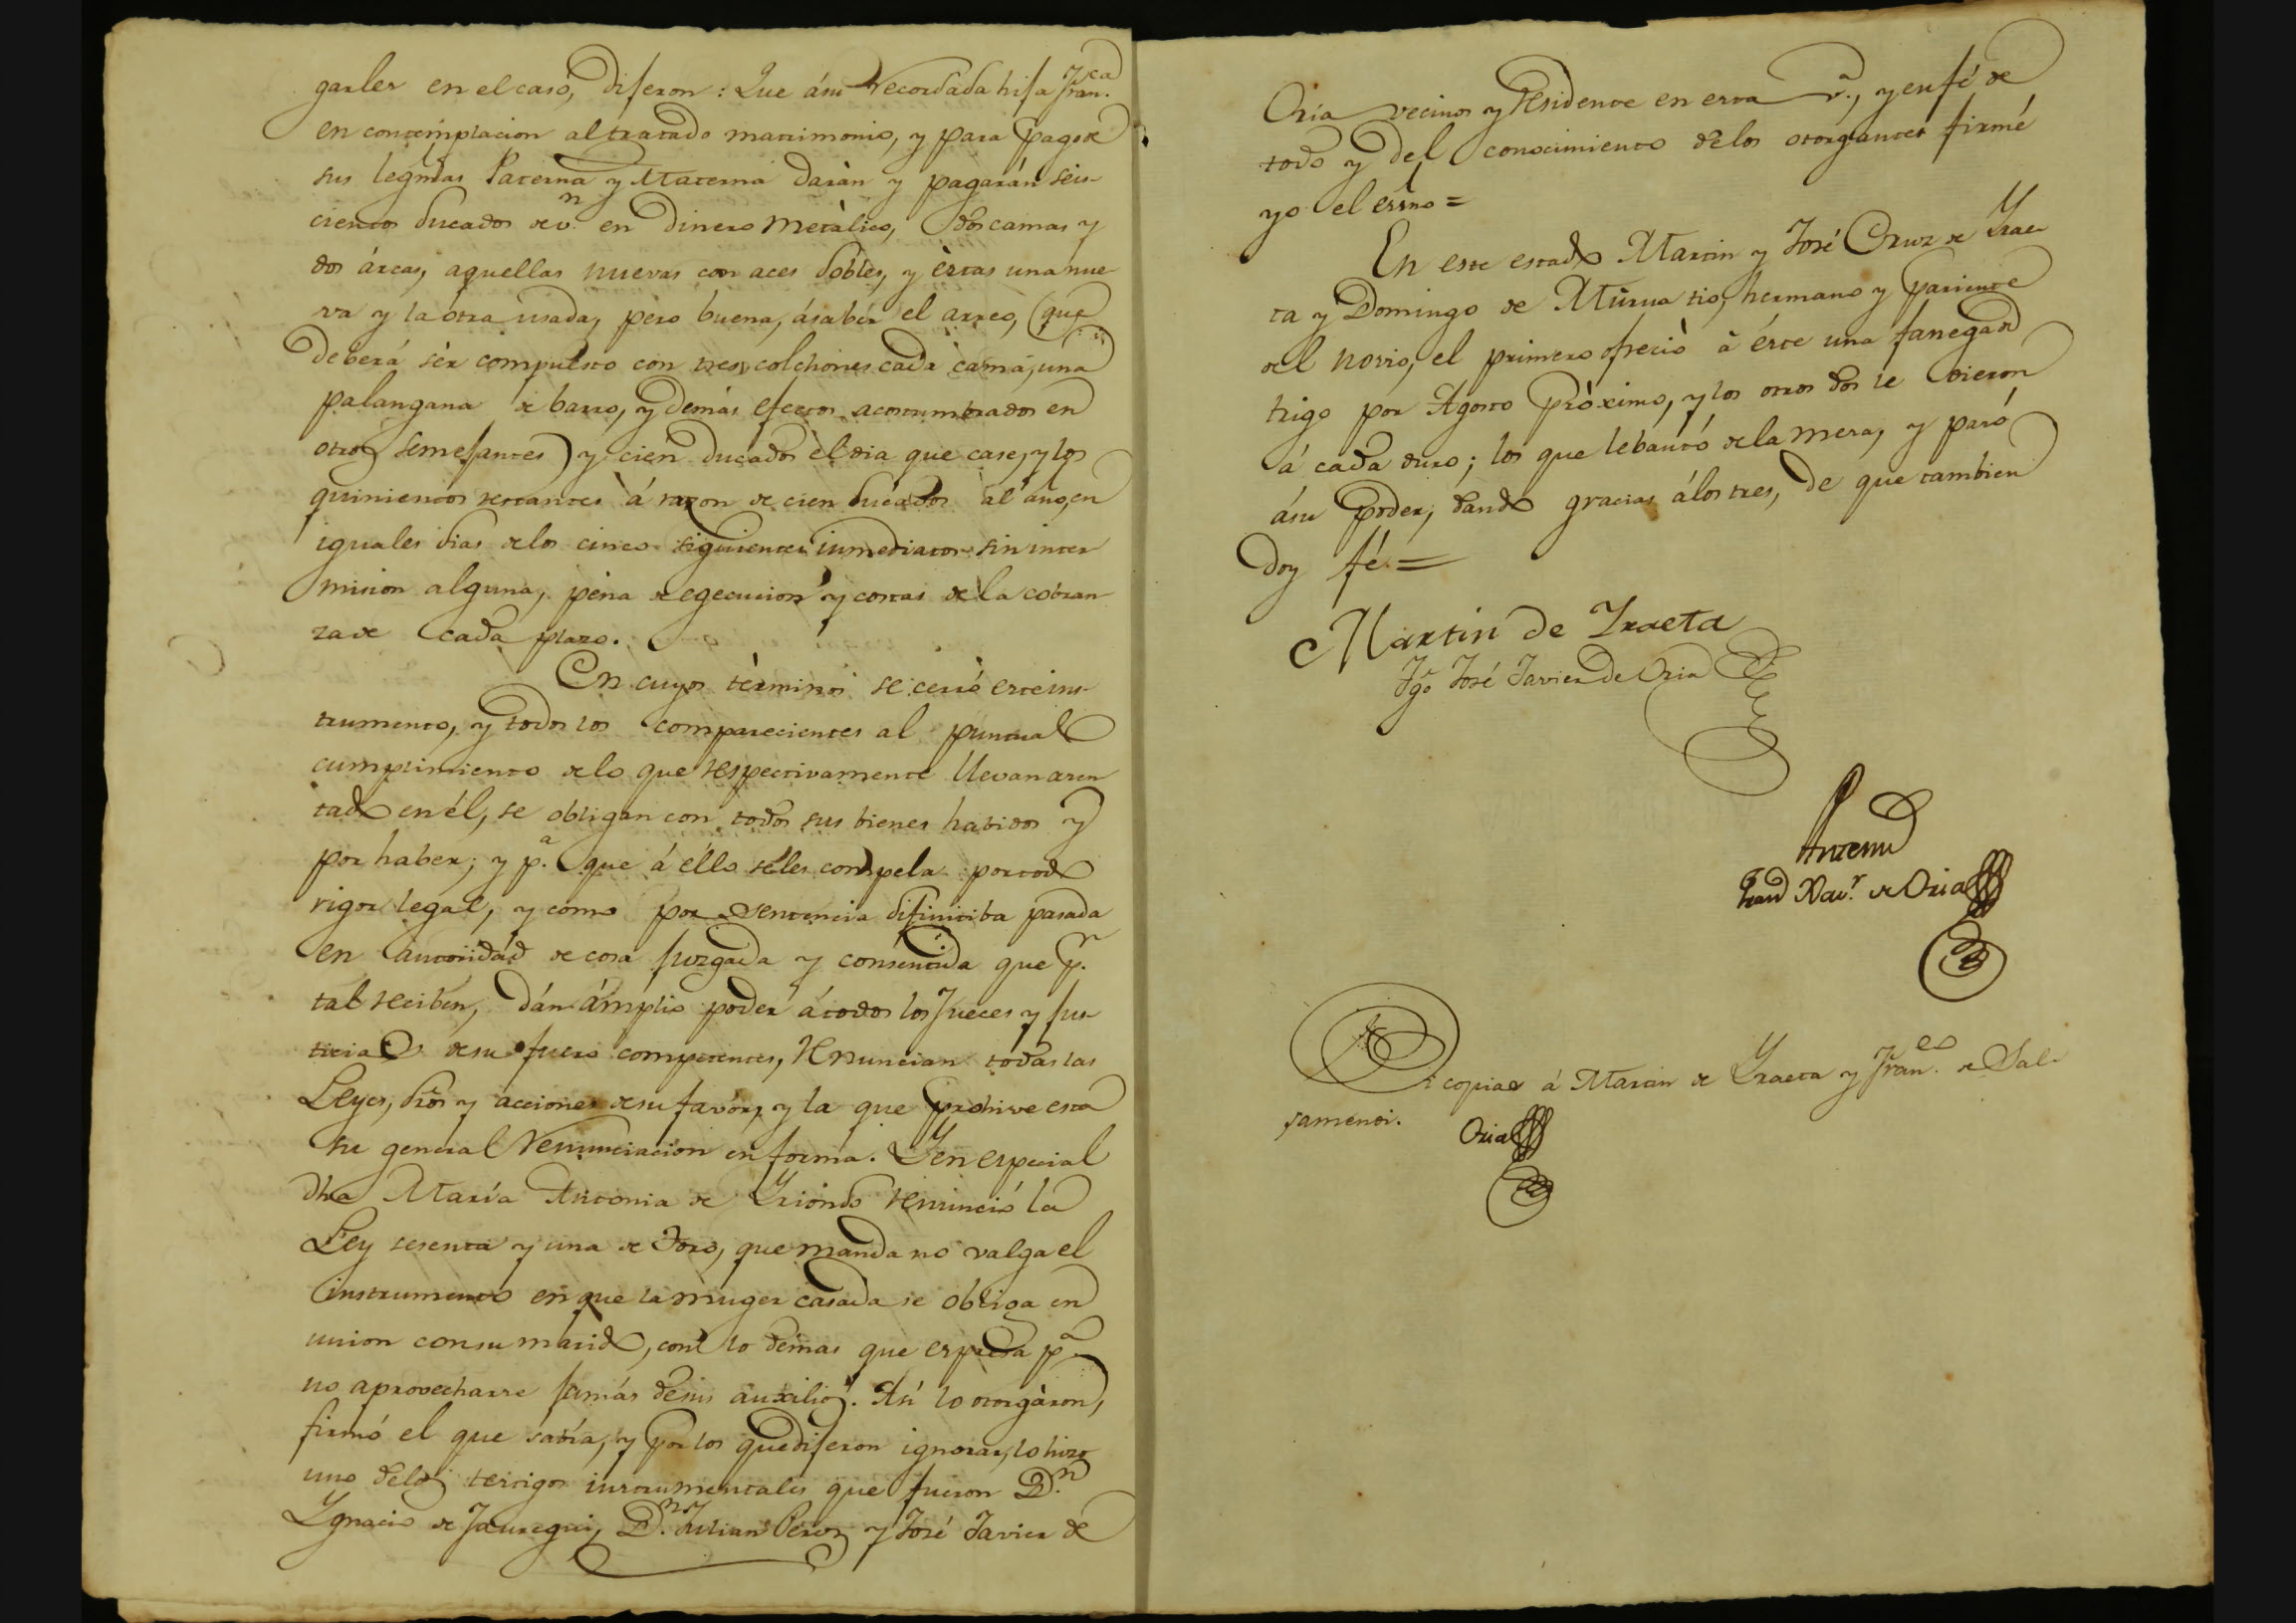 garles en el caso, dijeron: Que á su recordada hija Fran.ca
en contemplacion al tratado matrimonio, y para pago de
sus legmas Paterna y Materna darán y pagarán seis-
cientos ducados de v.n en dinero metàlico, dos camas y
dos árcas, aquellas nuevas con aces dobles, y èstas una nue-
va y la otra usada, pero buena, á saber el arreo, (que
deberá sèr compuesto con tres colchones cada cama, una
palangana de barro, y demás efectos acostumbrados en
otros semejantes) y cien ducados el dia que case, y los
quinientos restantes à razon de cien ducados al año, en
iguales dias de los cinco siguientes inmediatos sin inter
mision alguna, pena de egecucion y costas de la cobran
za de cada plazo.
En cuyos tèrminos se cerró este ins-
trumento, y todos los comparecientes al puntual
cumplimiento de lo que respectivamente llevan asen
tado en él, se obligan con todos sus bienes habidos y
por haber; y p.a que á éllo se les compela por todo
rigor legal, y como por sentencia difinitiba pasada
en autoridad de cosa juzgada y consentida que p.r
tal reciben, dán ámplio poder á todos los Jueces y Jus-
ticias de su fuero competentes, renuncian todas las
Leyes, dros y acciones de su favor, y la que prohive esta
su general renunciacion en forma. Y en especial
dha María Antonia de Yriondo renunció la
Ley sesenta y una de Toro, que manda no valga el
instrumento en que la muger casada se obliga en
union con su marido, con lo demas que espresa p.a
no aprovecharse jamás de sus auxilios. Asi lo otorgàron,
firmó el que sabía, y por los que dijeron ignorar, lo hizo
uno de los testigos instrumentales que fueron D.n
Ygnacio de Jauregui, D.n Julian Perez y José Javier de
Oria vecinos y residente en esta v.a, y en fé de
todo y del conocimiento de los otorgantes firmé
yo el essno =
En este estado Martin y José Cruz de Yrae-
ta y Domingo de Múrua tio, hermano y pariente
del novio, el primero ofreciò à éste una fanega de
trigo por Agosto pròximo, y los otros dos le dieron
á cada duro; los que lebantó de la mesa, y pasó
á su poder, dando gracias á los tres, de que tambien
doy fé. =
Martin de Yraeta
Tgo José Javier de Oria
Antemi
Xav.r de Oria
copias á Martin de Yraeta y Fran.co de Sal-
samendi.
Oria